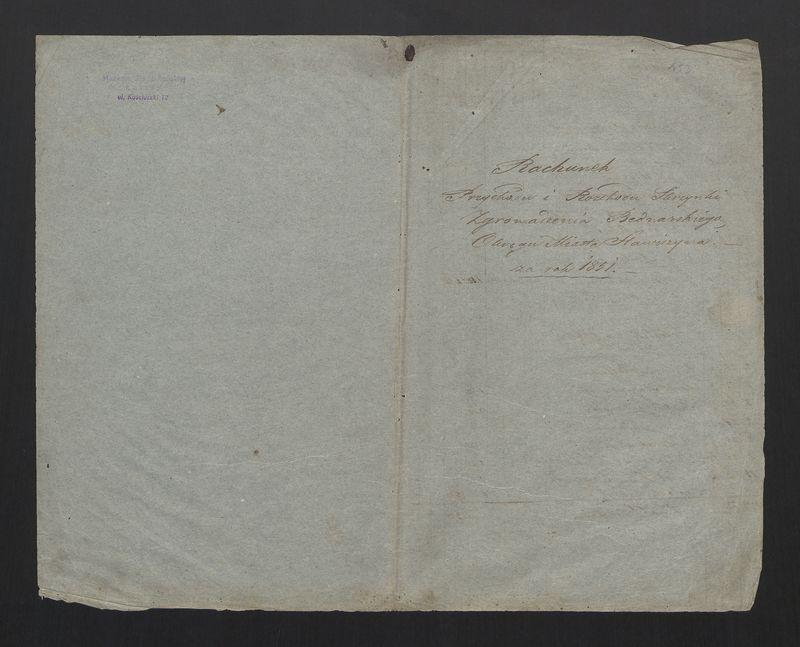 ul. Kościuszki 12
Rachunek
Przychodu i Rozchodu Skrzynki
Zgromadzenia Bednarskiego,
Okręgu Miasta Stawiszyna. —
za rok 1851. —